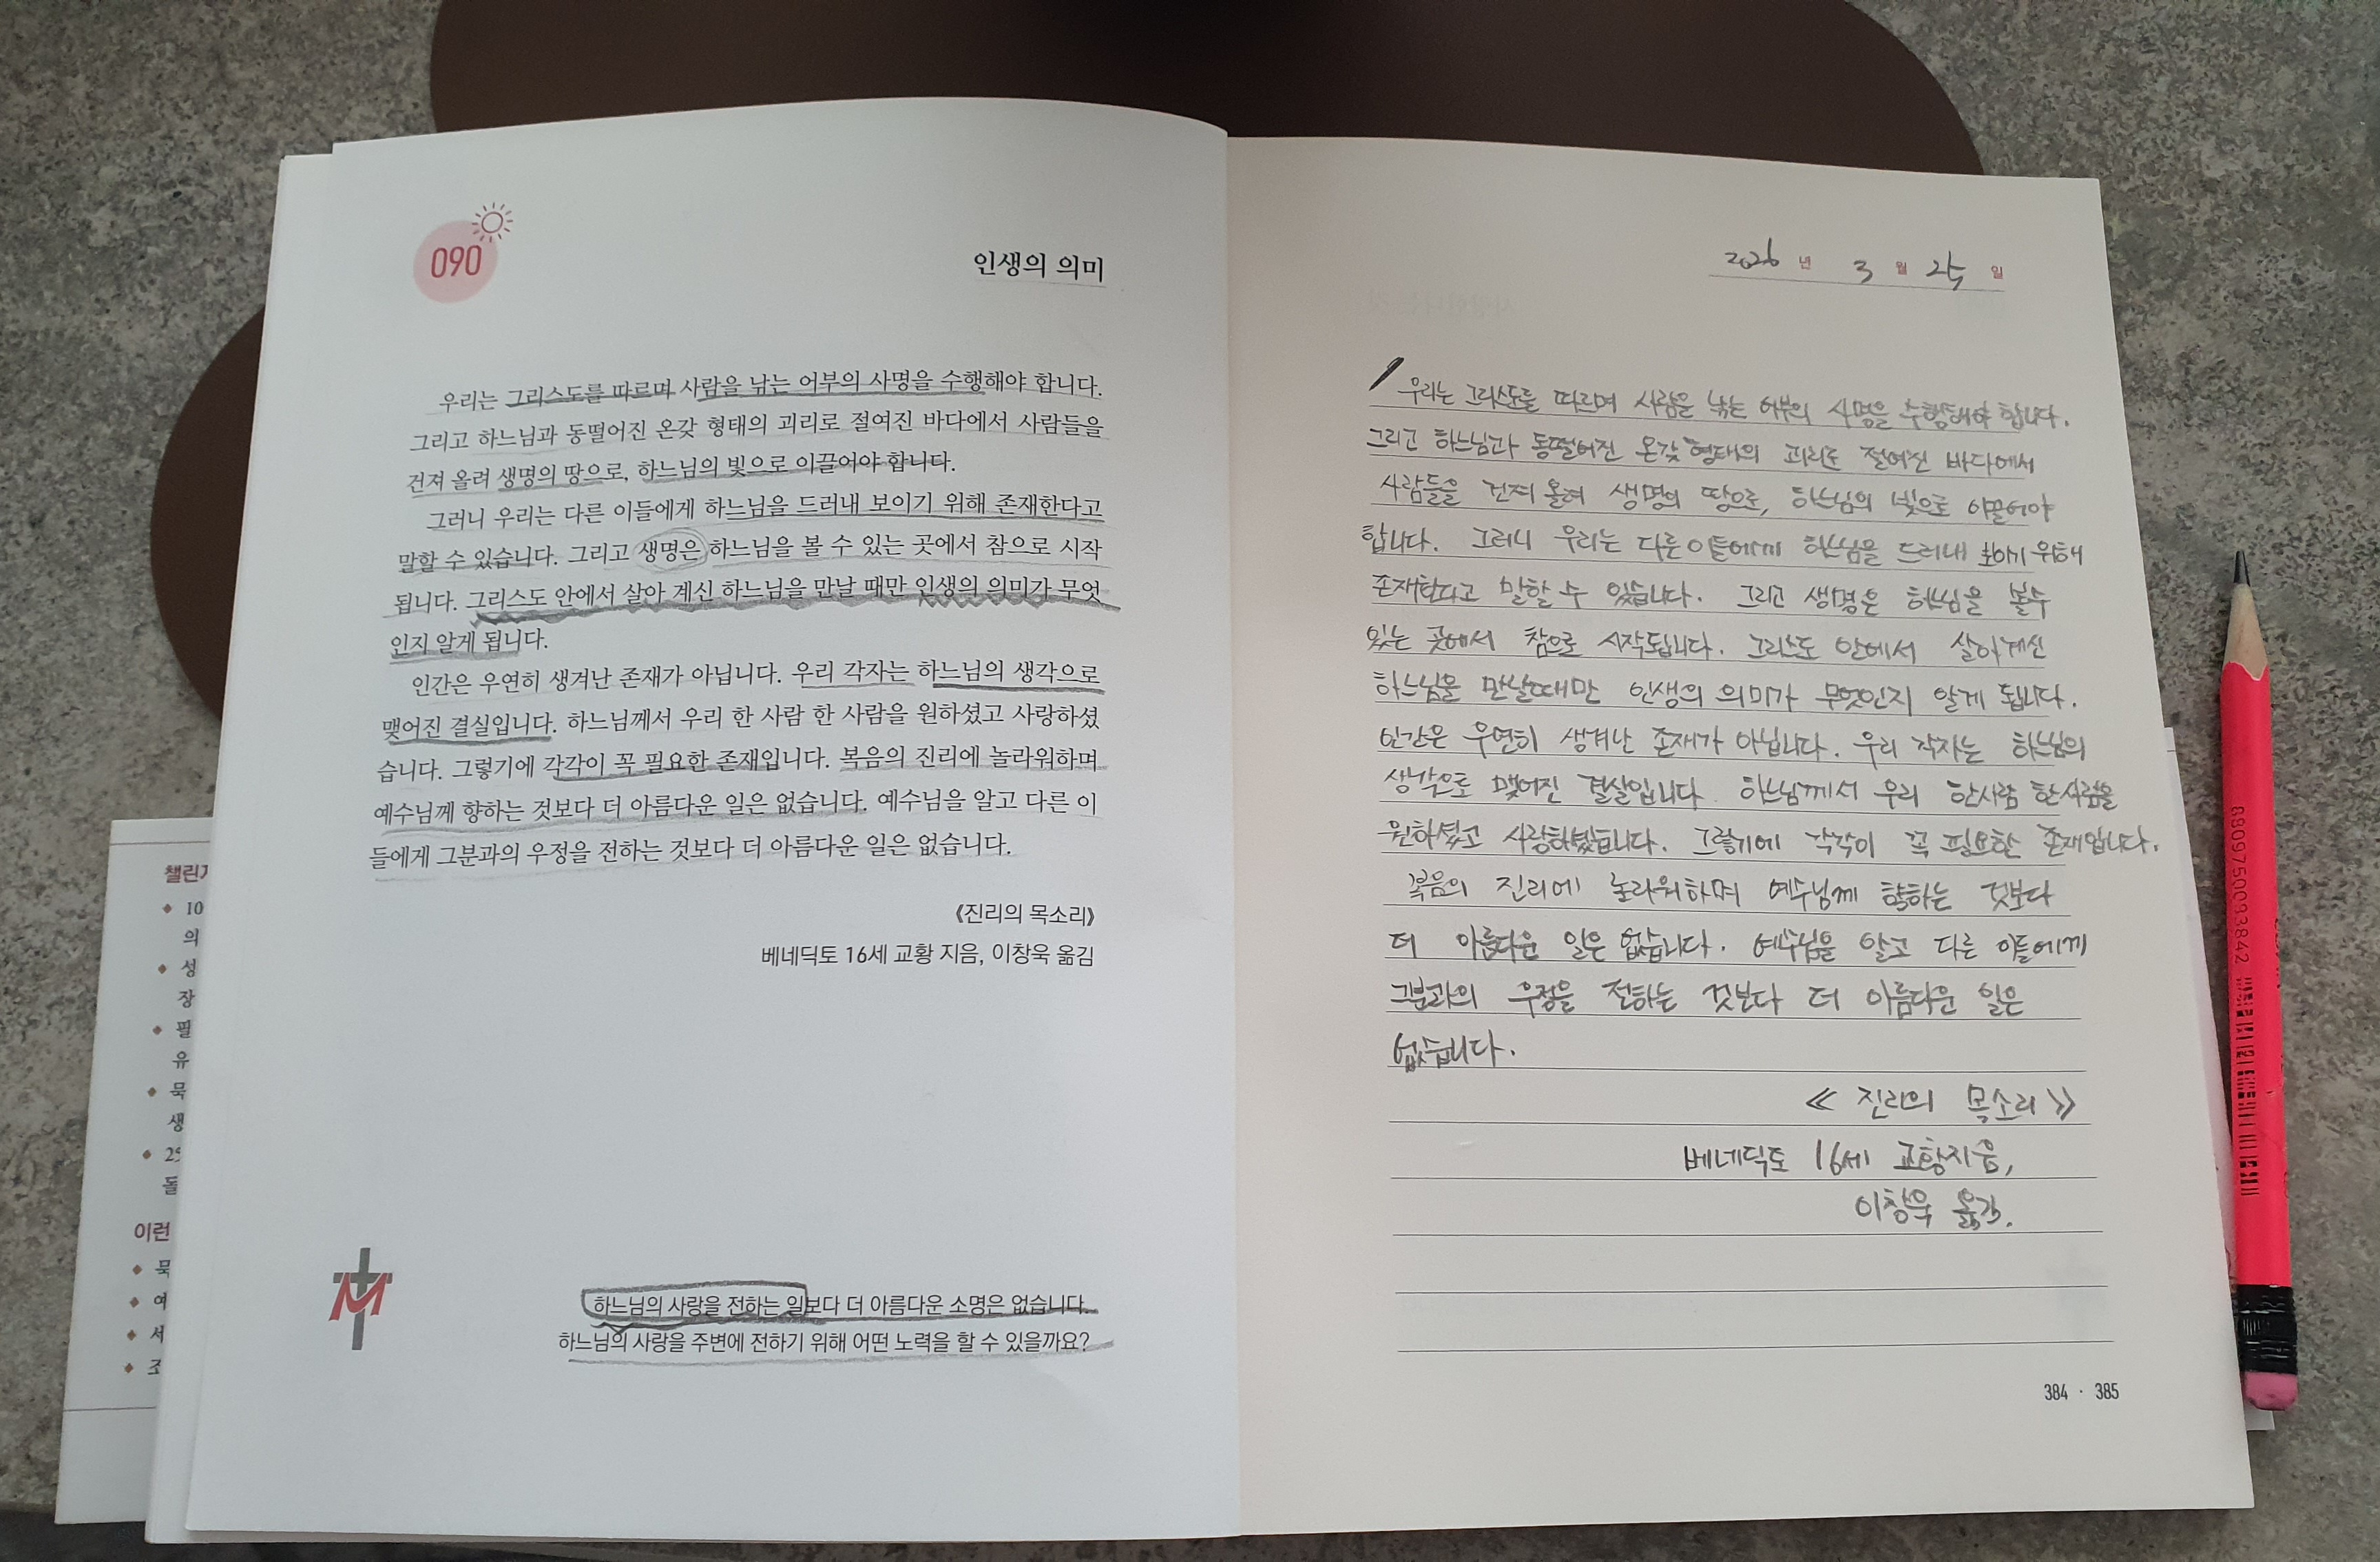 090
인생의 의미
우리는 그리스도를 따르며 사람을 낚는 어부의 사명을 수행해야 합니다.
그리고 하느님과 동떨어진 온갖 형태의 괴리로 절여진 바다에서 사람들을
건져 올려 생명의 땅으로, 하느님의 빛으로 이끌어야 합니다.
그러니 우리는 다른 이들에게 하느님을 드러내 보이기 위해 존재한다고
말할 수 있습니다. 그리고 생명은 하느님을 볼 수 있는 곳에서 참으로 시작
됩니다. 그리스도 안에서 살아 계신 하느님을 만날 때만 인생의 의미가 무엇
인지 알게 됩니다.
인간은 우연히 생겨난 존재가 아닙니다. 우리 각자는 하느님의 생각으로
맺어진 결실입니다. 하느님께서 우리 한 사람 한 사람을 원하셨고 사랑하셨
습니다. 그렇기에 각각이 꼭 필요한 존재입니다. 복음의 진리에 놀라워하며
예수님께 향하는 것보다 더 아름다운 일은 없습니다. 예수님을 알고 다른 이
들에게 그분과의 우정을 전하는 것보다 더 아름다운 일은 없습니다.
《진리의 목소리》
베네딕토 16세 교황 지음, 이창욱 옮김
M
하느님의 사랑을 전하는 일보다 더 아름다운 소명은 없습니다.
하느님의 사랑을 주변에 전하기 위해 어떤 노력을 할 수 있을까요?
챌린지
10
의
성
장
필
유
묵
생
25
돌
이런
묵
예
세
조
2026 년 3 월 25 일
우리는 그리스도를 따르며 사람을 낚는 어부의 사명을 수행해야 합니다.
그리고 하느님과 동떨어진 온갖 형태의 괴리로 절여진 바다에서
사람들을 건져 올려 생명의 땅으로, 하느님의 빛으로 이끌어야
합니다. 그러니 우리는 다른 이들에게 하느님을 드러내 보이기 위해
존재한다고 말할 수 있습니다. 그리고 생명은 하느님을 볼수
있는 곳에서 참으로 시작됩니다. 그리스도 안에서 살아계신
하느님을 만날때만 인생의 의미가 무엇인지 알게 됩니다.
인간은 우연히 생겨난 존재가 아닙니다. 우리 각자는 하느님의
생각으로 맺어진 결실입니다. 하느님께서 우리 한사람 한사람을
원하셨고 사랑하셨습니다. 그렇기에 각각이 꼭 필요한 존재입니다.
복음의 진리에 놀라워하며 예수님께 향하는 것보다
더 아름다운 일은 없습니다. 예수님을 알고 다른 이들에게
그분과의 우정을 전하는 것보다 더 아름다운 일은
없습니다.
≪ 진리의 목소리 ≫
베네딕토 16세 교황지음,
이창욱 옮김.
384 · 385
8809750093842